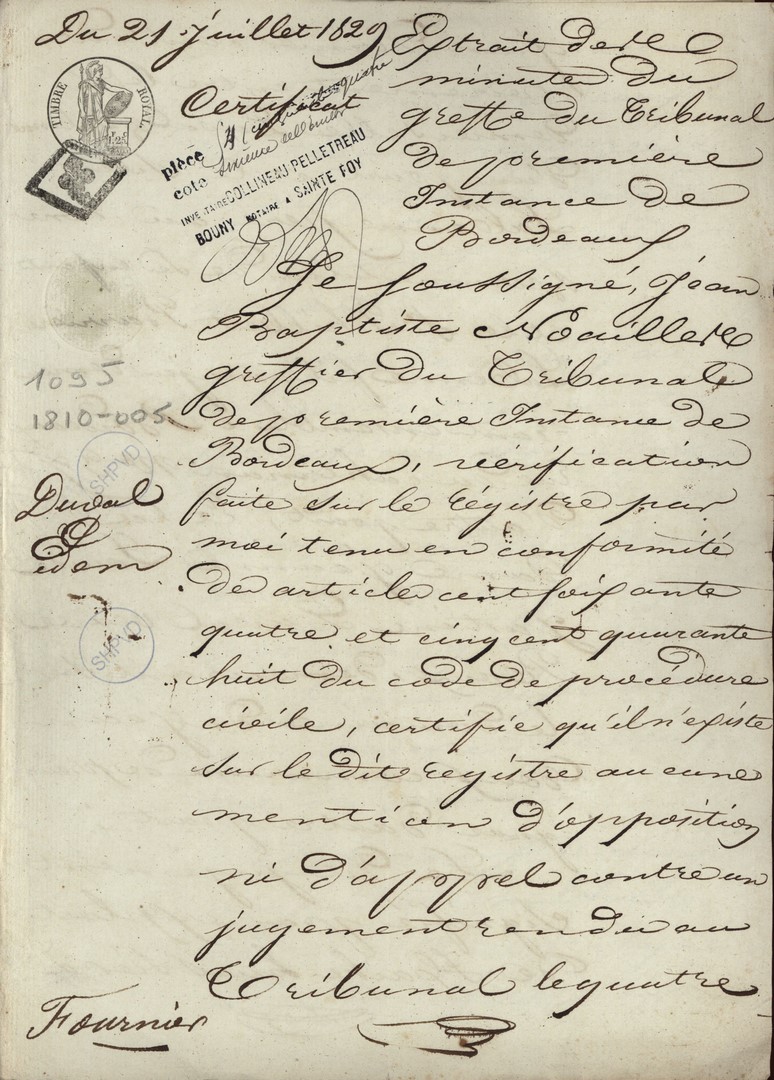 Du 21 juillet 1829
Certificat
Extrait des
minutes du
greffe du Tribunal
de première
Instance de
Bordeaux
TIMBRE ROYAL
pièce 54 cinquante quatre
cote
INVENTAIRE COLLINEAU PELLETREAU
BOUNY NOTAIRE A SAINTE FOY
Je soussigné, Jean
Baptiste Noailles
greffier du Tribunal
de première Instance de
Bordeaux, vérification
faite sur le régistre par
moi tenu en conformité
des articles cent soixante
quatre et cinq cent quarante
huit du code de procédure
civile, certifie qu'il n'existe
sur le dit registre aucune
mention d'opposition
ni d'appel contre un
jugement rendu au
Tribunal le quatre
1095
1810-005
SHPVD
Duval
&
Edem
SHPVD
Fournier